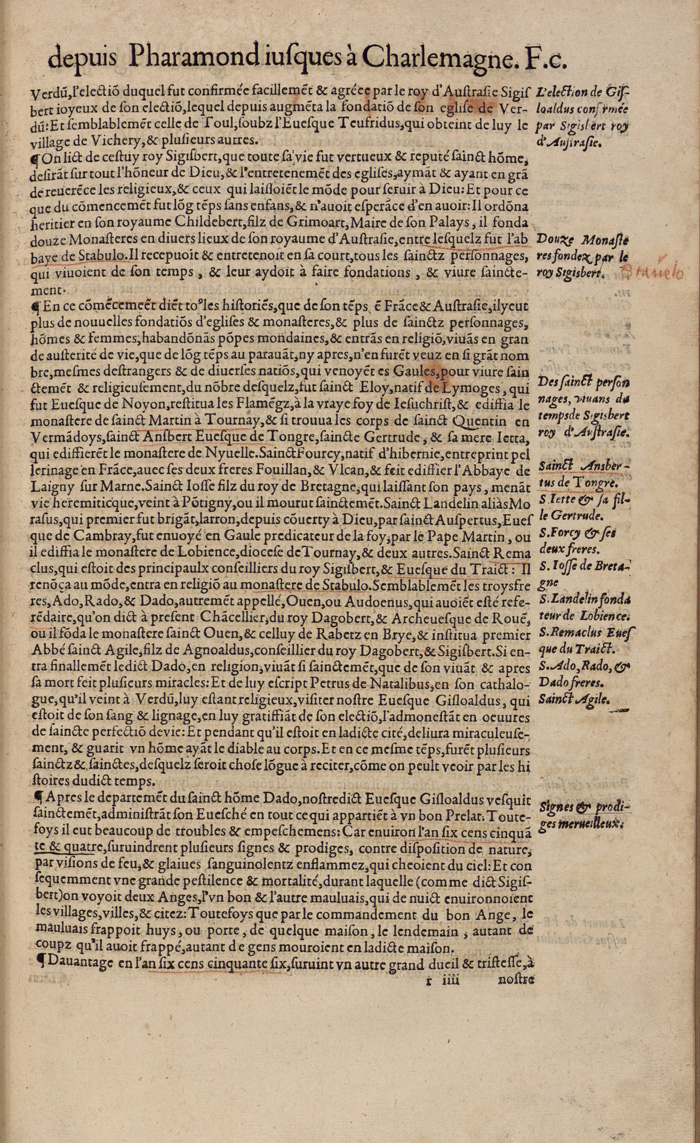 depuis Pharamond iusques à Charlemagne. F.c.
Verdũ, l'electiõ duquel fut confirmée facillemẽt & agréee par le roy d'Austrasie Sigis
bert ioyeux de son electiõ, lequel depuis augmẽta la fondatiõ de son eglise de Ver-
dũ: Et semblablemẽt celle de Toul, soubz l'Euesque Teufridus, qui obteint de luy le
village de Vichery, & plusieurs autres.
¶ On lict de cestuy roy Sigisbert, que toute sa vie fut vertueux & reputé sainct hõme,
desirãt sur tout l'hõneur de Dieu, & l'entretenemẽt des eglises, aymãt & ayant en grã
de reuerẽce les religieux, & ceux qui laissoiẽt le mõde pour seruir à Dieu: Et pour ce
que du cõmencemẽt fut lõg tẽps sans enfans, & n'auoit esperãce d'en auoir: Il ordõna
heritier en son royaume Childebert, filz de Grimoart, Maire de son Palays, il fonda
douze Monasteres en diuers lieux de son royaume d'Austrasie, entre lesquelz fut l'ab
baye de Stabulo. Il recepuoit & entretenoit en sa court, tous les sainctz personnages,
qui viuoient de son temps, & leur aydoit à faire fondations, & viure saincte-
ment.
¶ En ce cõmẽcemẽt diẽt toꝰ les historiẽs, que de son tẽps ẽ Frãce & Austrasie, il y eut
plus de nouuelles fondatiõs d'eglises & monasteres, & plus de sainctz personnages,
hõmes & femmes, habandõnãs põpes mondaines, & entrãs en religiõ, viuãs en gran
de austerité de vie, que de lõg tẽps au parauãt, ny apres, n'en furẽt veuz en si grãt nom
bre, mesmes destrangers & de diuerses natiõs, qui venoyẽt es Gaules, pour viure sain
ctemẽt & religieusement, du nõbre desquelz, fut sainct Eloy, natif de Lymoges, qui
fut Euesque de Noyon, restitua les Flamẽgz, à la vraye foy de Iesuchrist, & ediffia le
monastere de sainct Martin à Tournay, & si trouua les corps de sainct Quentin en
Vermãdoys, sainct Ansbert Euesque de Tongre, saincte Gertrude, & sa mere Ietta,
qui ediffierẽt le monastere de Nyuelle. Sainct Fourcy, natif d'hibernie, entreprint pel
lerinage en Frãce, auec ses deux freres Fouillan, & Vlcan, & feit ediffier l'Abbaye de
Laigny sur Marne. Sainct Iosse filz du roy de Bretagne, qui laissant son pays, menãt
vie heremiticque, veint à Põtigny, ou il mourut sainctemẽt. Sainct Landelin aliàs Mo
rasus, qui premier fut brigãt, larron, depuis cõuerty à Dieu, par sainct Auspertus, Eues
que de Cambray, fut enuoyé en Gaule predicateur de la foy, par le Pape Martin, ou
il ediffia le monastere de Lobience, diocese de Tournay, & deux autres. Sainct Rema
clus, qui estoit des principaulx conseilliers du roy Sigisbert, & Euesque du Traict: Il
renõça au mõde, entra en religiõ au monastere de Stabulo. Semblablemẽt les troys fre
res, Ado, Rado, & Dado, autremẽt appellé, Ouen, ou Audoenus, qui auoiẽt esté refe-
rẽdaire, qu'on dict à present Chãcellier, du roy Dagobert, & Archeuesque de Rouẽ,
ou il fõda le monastere sainct Ouen, & celluy de Rabetz en Brye, & institua premier
Abbé sainct Agile, filz de Agnoaldus, conseillier du roy Dagobert, & Sigisbert. Si en-
tra finallemẽt ledict Dado, en religion, viuãt si sainctemẽt, que de son viuãt & apres
sa mort feit plusieurs miracles: Et de luy escript Petrus de Natalibus, en son cathalo-
gue, qu'il veint à Verdũ, luy estant religieux, visiter nostre Euesque Gisloaldus, qui
estoit de son sang & lignage, en luy gratiffiãt de son electiõ, l'admonestãt en oeuures
de saincte perfectiõ deuie: Et pendant qu'il estoit en ladicte cité, deliura miraculeuse-
ment, & guarit vn hõme ayãt le diable au corps. Et en ce mesme tẽps, furẽt plusieurs
sainctz & sainctes, desquelz seroit chose lõgue à reciter, cõme on peult veoir par les hi
stoires dudict temps.
¶ Apres le departemẽt du sainct hõme Dado, nostredict Euesque Gisloaldus vesquit
sainctemẽt, administrãt son Euesché en tout ce qui appartiẽt à vn bon Prelat. Toute-
foys il eut beaucoup de troubles & empeschemens: Car enuiron l'an six cens cinquã
te & quatre, suruindrent plusieurs signes & prodiges, contre disposition de nature,
par visions de feu, & glaiues sanguinolentz enflammez, qui cheoient du ciel: Et con
sequemment vne grande pestilence & mortalité, durant laquelle (comme dict Sigis-
bert) on voyoit deux Anges, l'vn bon & l'autre mauluais, qui de nuict enuironnoient
les villages, villes, & citez: Toutesoys que par le commandement du bon Ange, le
mauluais frappoit huys, ou porte, de quelque maison, le lendemain, autant de
coupz qu'il auoit frappé, autant de gens mouroient en ladicte maison.
¶ Dauantage en l'an six cens cinquante six, suruint vn autre grand dueil & tristesse, à
r iiii nostre
L'election de Gis-
loaldus confirmée
par Sigisbert roy
d'Austrasie.
Douze Monaste
res fondez par le
roy Sigisbert.
Des sainct person
nages, viuans du
temps de Sigisbert
roy d'Austrasie.
Sainct Ansber-
tus de Tongre.
S Iette & sa fil-
le Gertrude.
S. Forcy & ses
deux freres.
S. Iosse de Breta-
gne
S. Landelin fonda
teur de Lobience.
S. Remaclus Eues
que du Traict.
S. Ado, Rado, &
Dado freres.
Sainct Agile.
Signes & prodi-
ges merueilleux.